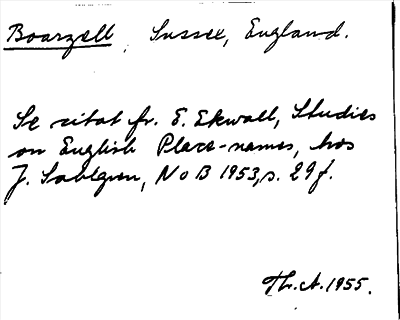 Boarzell, Sussex, England.
Se citat fr. E. Ekwall, Studies
on English Place-names, hos
J. Sahlgren, NoB 1953, s. 29 f.
Th. A. 1955.